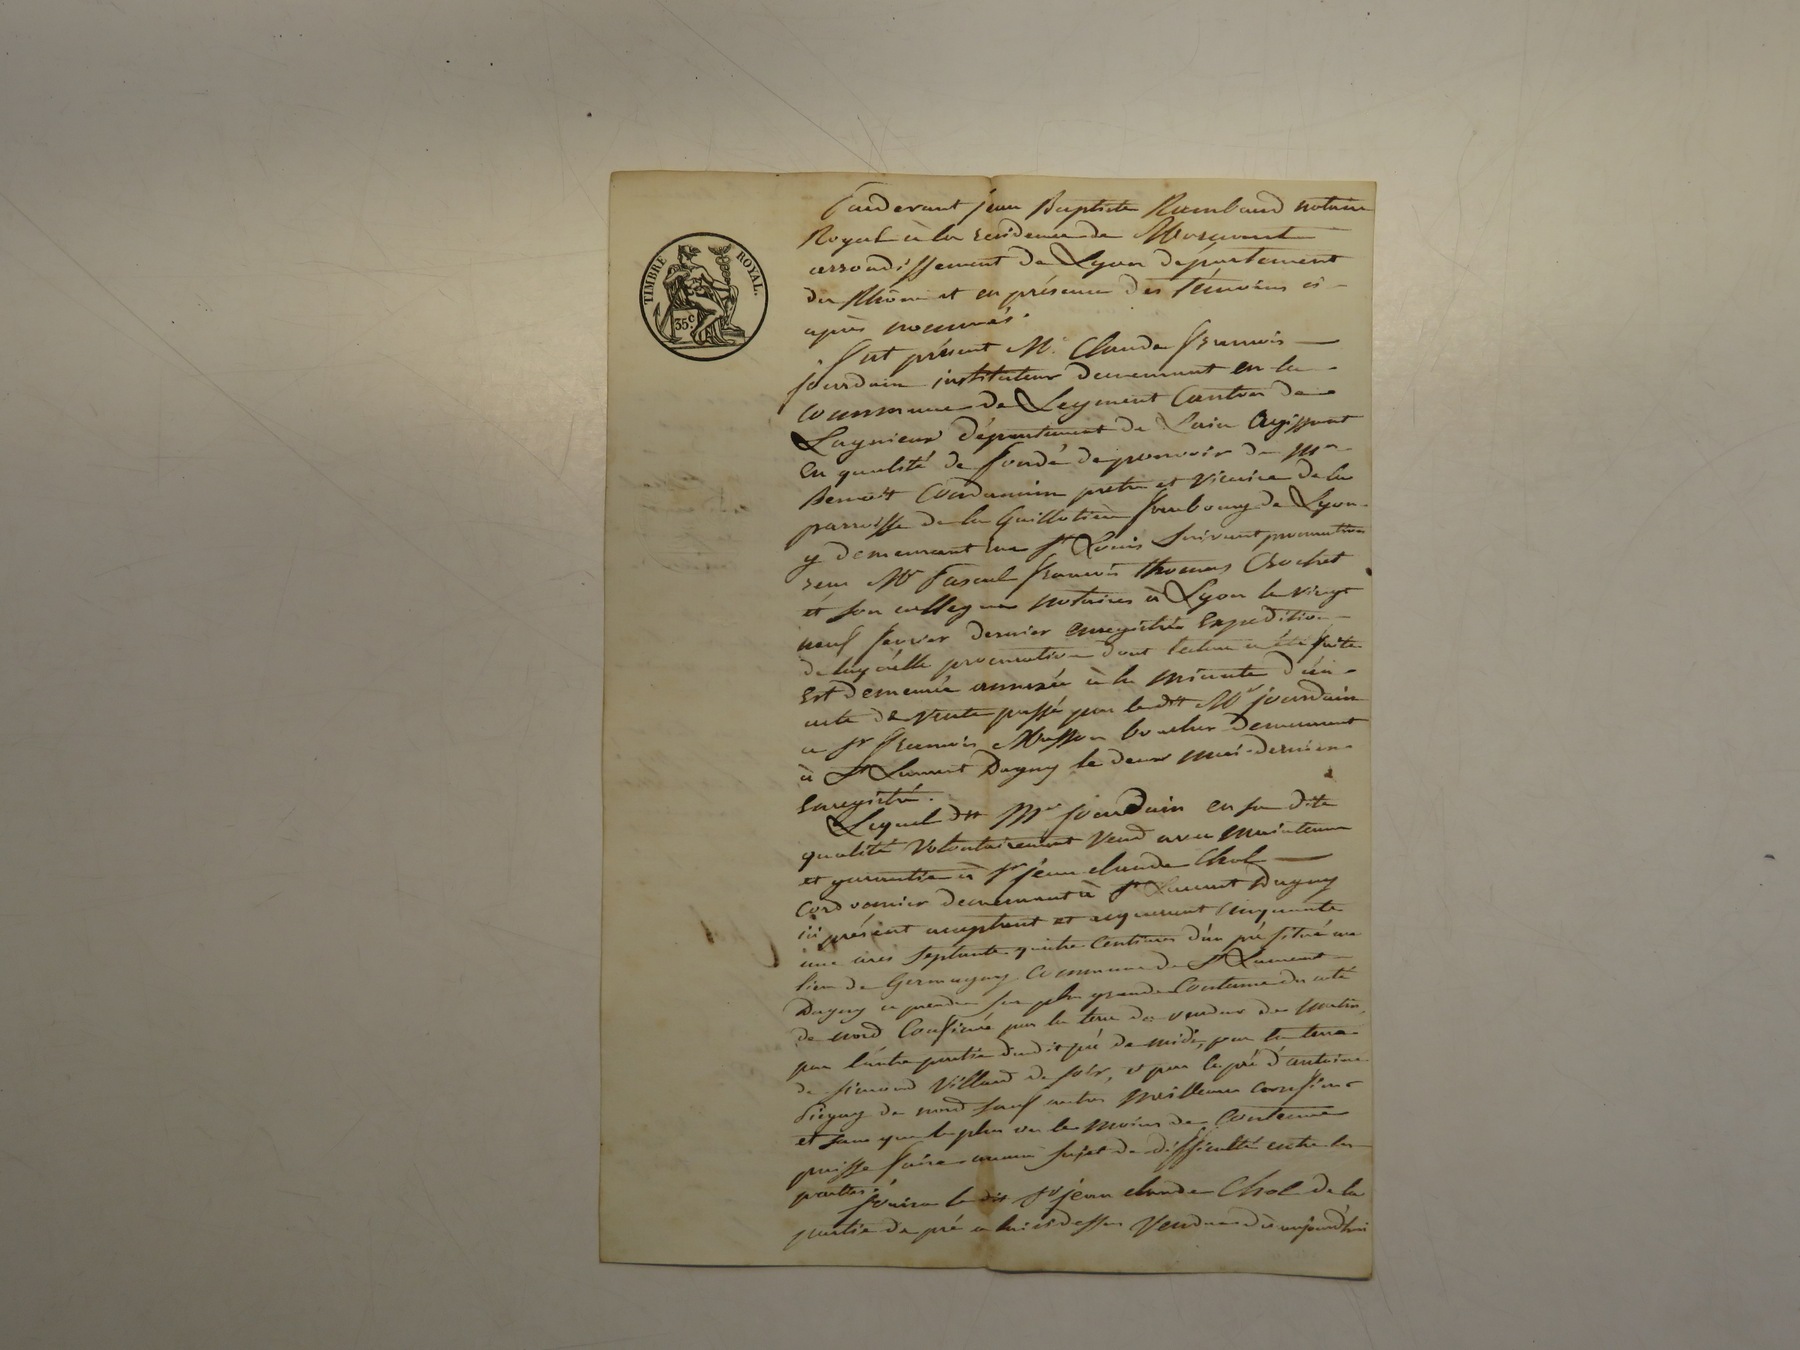 TIMBRE ROYAL.
35 c.
Pardevant jean Baptiste Rambaud notaire
Royal à la residence de Mornant
arrondissement de Lyon departement
du Rhône et en présence des témoins ci-
après nommés.
fut présent Mr. Claude francois
jourdain instituteur demeurant en la
commune de Leyment Canton de
Lagnieux département de Lain Agissant
en qualité de fondé de pouvoir de Mr
Benoit Condamin pretre et vicaire de la
parroisse de la Guillotière faubourg de Lyon
y demeurant rue St Louis suivant procuration
reçu Mr Pascal francois thomas Crochet
et son collegue notaires à Lyon le vingt
neuf janvier dernier enregistrée Expédition
de laquelle procuration dont lecture a été faite
Est demeurée annexée à la minute d'un
acte de vente passé par le dit Mr jourdain
a Sr francois Masson boucher demeurant
à St Laurent Dagny le deux mai dernier
Enregistré.
Lequel dit Mr jourdain en sa dite
qualité volontairement vend avec maintenue
et garantie à Sr jean claude Chol
Cordonnier demeurant à St Laurent Dagny
ici présent acceptant et acquerant Cinquante
une ares septante quatre centiares d'un pré situé au
lieu de Germagny Commune de St Laurent
Dagny a prendre sur plus grande Contenue du coté
de nord Confiné par la terre du vendeur de matin,
par l'autre partie dudit pré de midi, par la terre
de simond Villard de soir, et par le pré d'antoine
de nord sauf autres meilleurs confins
et sans que le plus ou le moins de Contenue
puisse faire aucun sujet de difficulté entre les
parties.
jouira le dit Sr jean claude Chol de la
partie de pré a lui ci dessus vendue dès aujourd'hui